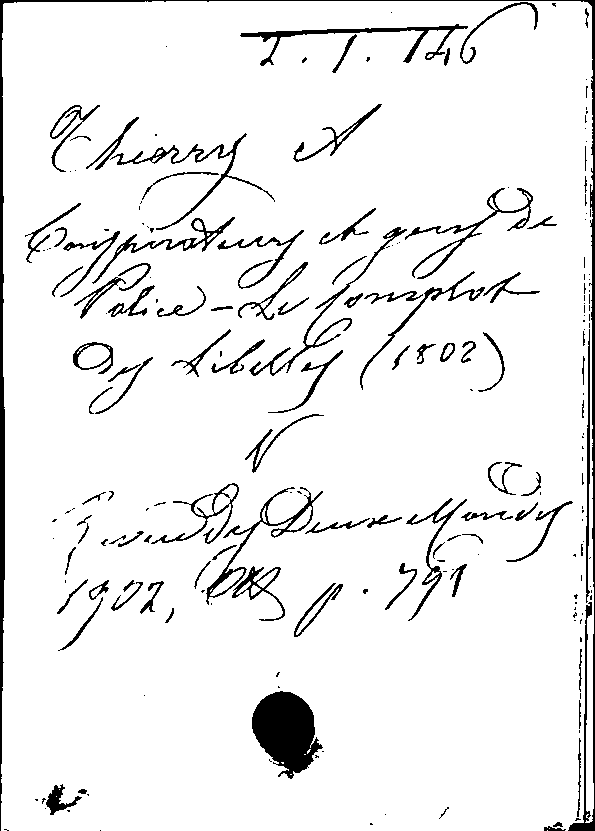 2.1.146
Thierry A
Conspirateurs et gens de
Police - Le Complot
des Libelles (1802)
V
Revue des Deux Mondes
1902, p. 791